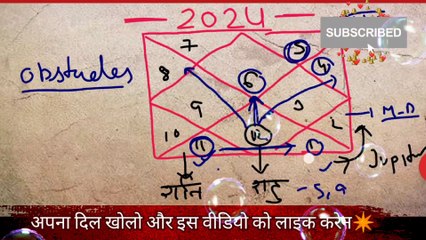 2024
SUBSCRIBED
7
5
4
obstucles
8
6
9
3
2
M-D
12
10
11
1
राहु
-5,9
अपना दिल खोलो और इस वीडियो को लाइक करन